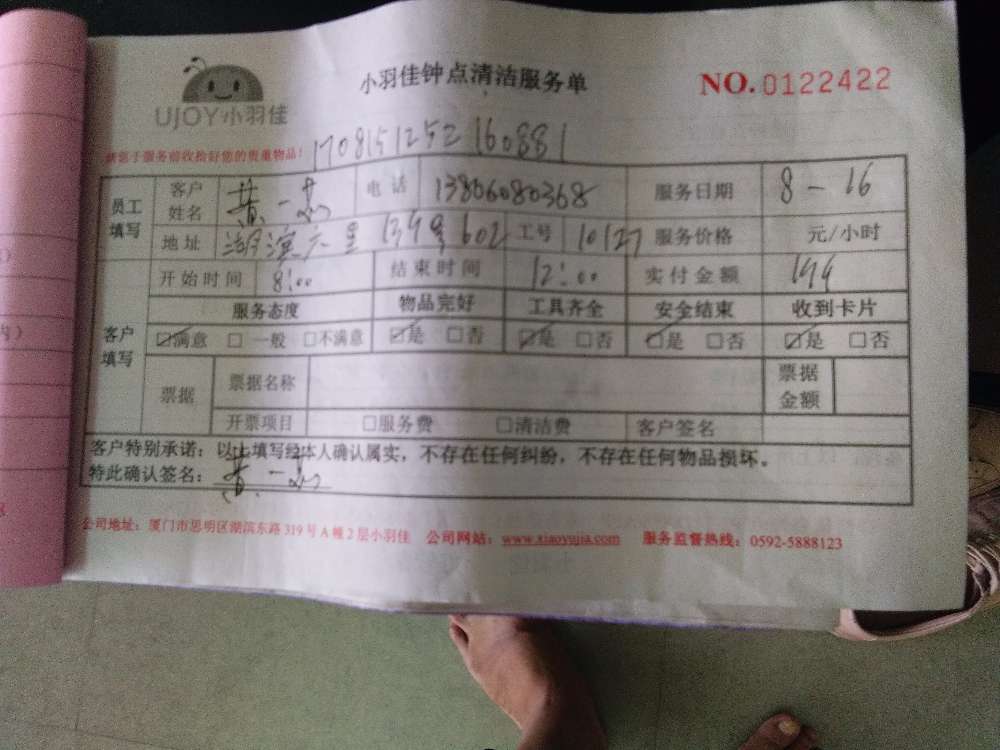 小羽佳钟点清洁服务单
NO.0122422
UJOY小羽佳
请您于服务前收拾好您的贵重物品!
1708151252160881
员工填写 客户姓名 黄一 电话 13806080368 服务日期 8-16
地址 湖滨六里 134号602 工号 10127 服务价格 元/小时
开始时间 8:00 结束时间 12:00 实付金额 144
客户填写 服务态度 物品完好 工具齐全 安全结束 收到卡片
☑满意 □一般 □不满意 ☑是 □否 ☑是 □否 ☑是 □否 ☑是 □否
票据 票据名称 票据金额
开票项目 □服务费 □清洁费 客户签名
客户特别承诺:以上填写经本人确认属实,不存在任何纠纷,不存在任何物品损坏。
特此确认签名:黄一
公司地址:厦门市思明区湖滨东路319号A幢2层小羽佳 公司网站:www.xiaoyujia.com 服务监督热线:0592-5888123
内)